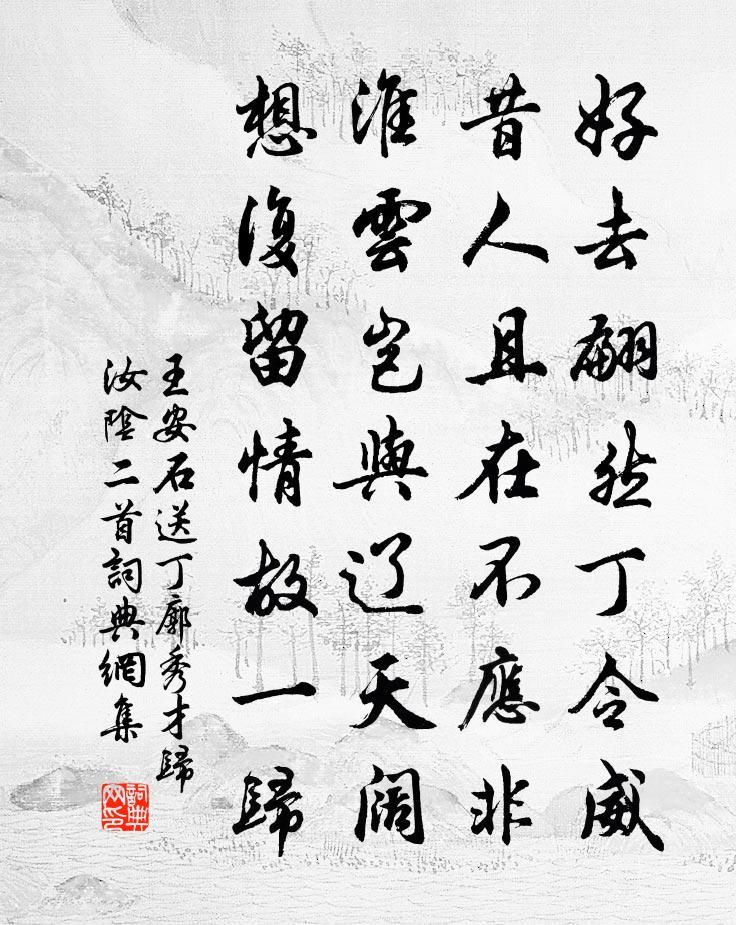 好去翩然丁令威
昔人且在不應非
淮雲豈與辽天闊
想復留情故一歸
王安石送丁廓秀才歸
汝陰二首詞典網集
詞典
网印